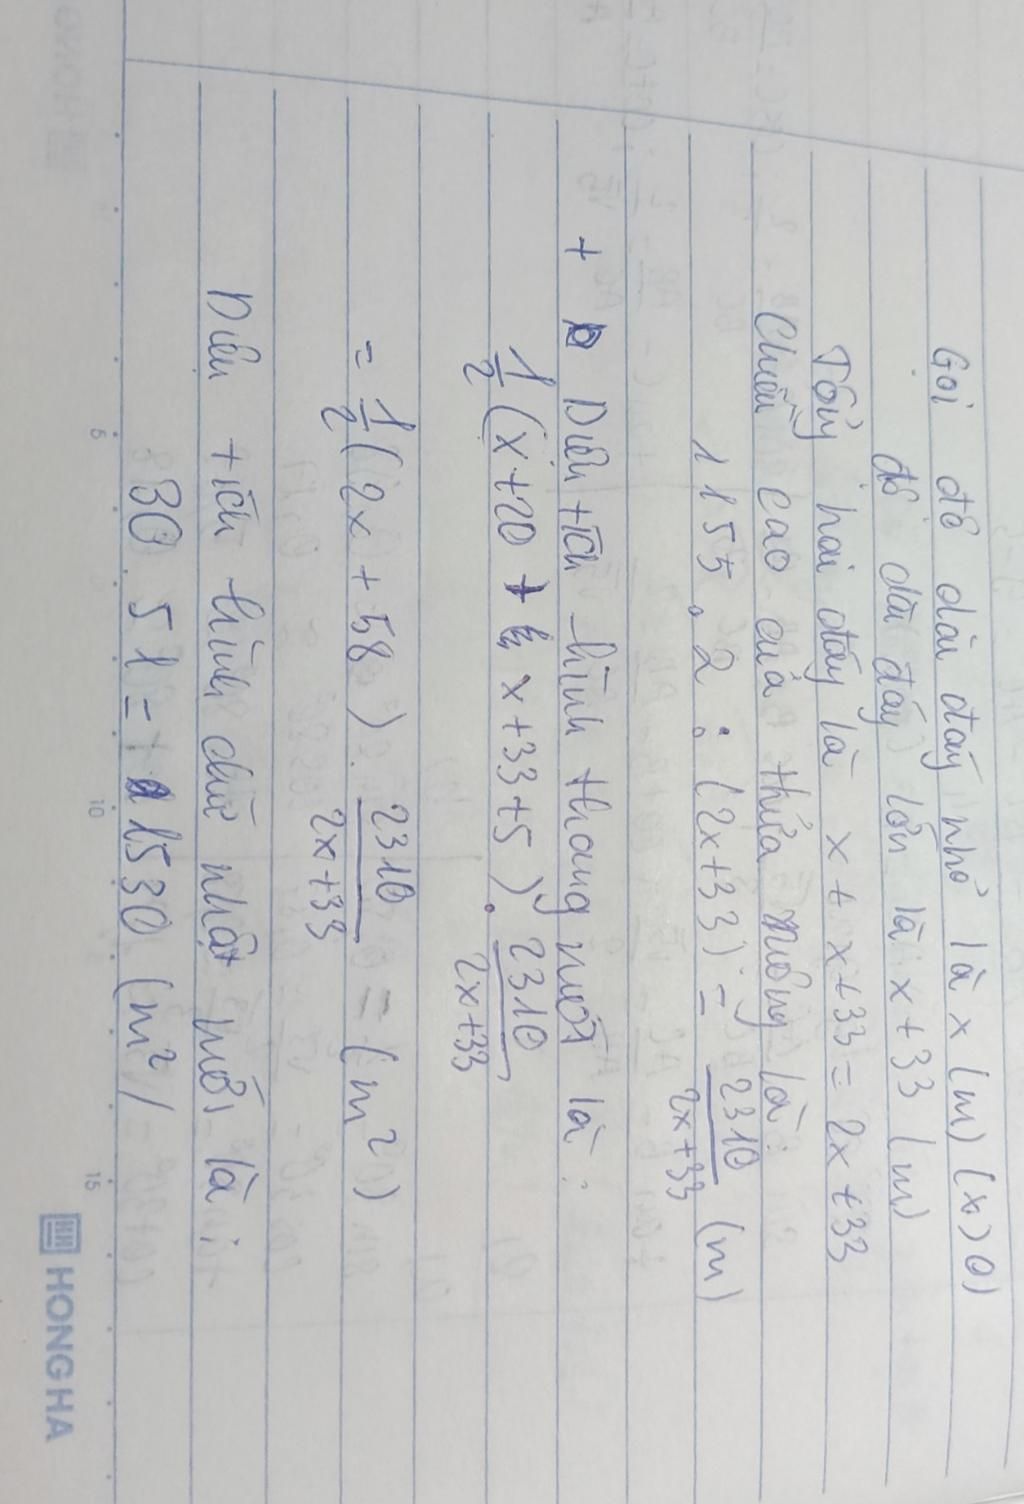 Gọi độ dài đáy nhỏ là x (m) (x > 0)
độ dài đáy lớn là x + 33 (m)
Tổng hai đáy là x + x + 33 = 2x + 33
Chiều cao của thửa ruộng là:
1155 . 2 : (2x + 33) = 2310/(2x + 33) (m)
+ Diện tích hình thang mới là:
1/2 (x + 20 + x + 33 + 5) . 2310/(2x + 33)
= 1/2 (2x + 58) . 2310/(2x + 33) = (m²)
Diện tích hình chữ nhật mới là:
30 . 51 = 1530 (m²)
5 10 15
HONG HA